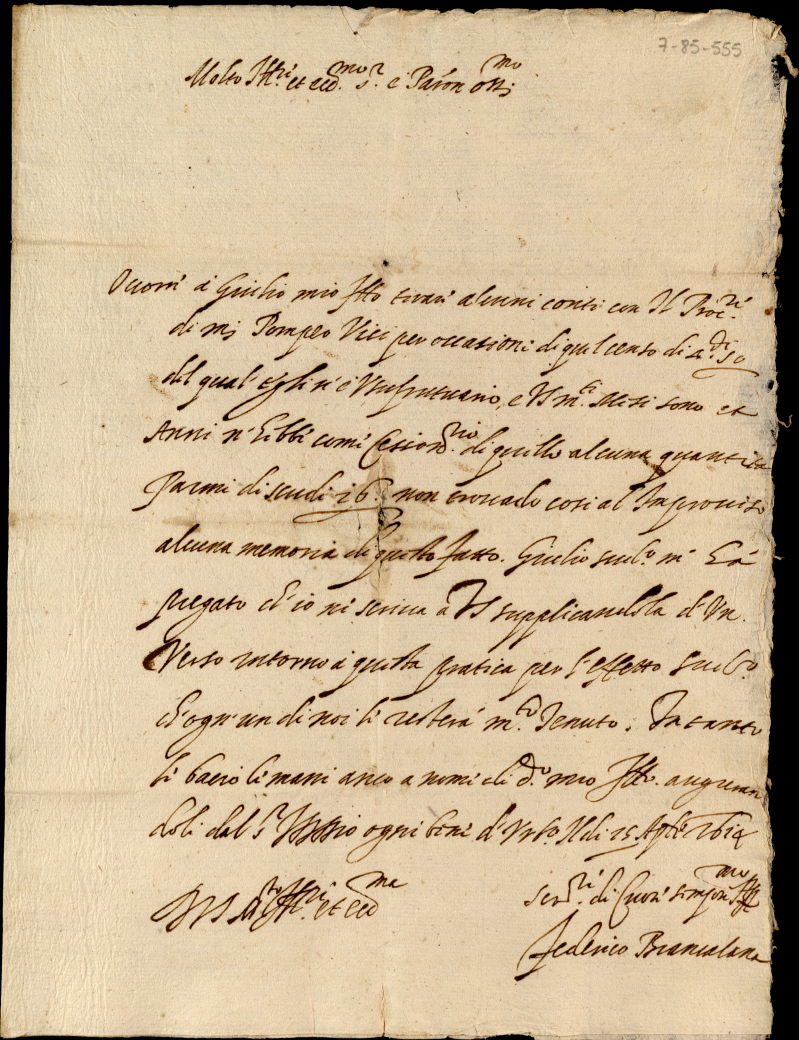 7-85-555
Molto Ill.re et ecc.mo s.r e Patron oss.mo
Occorre a Giulio mio fr̃llo tirare alcuni conti con Il Proc.re
di m̃s Pompeo Viti per occasione di quel censo di
del quale egli n'è Usufrutuario, e VS m.to Mesi sono et
Anni n'hebbe come Cession.rio di quello alcuna quantità
Parmi di scudi 26. non trovando così al Improviso
alcuna memoria di questo fatto. Giulio sud.o m'hà
pregato ch'io ne scriva a VS supplicandola d'Un
Verso intorno a questa pratica per l'effetto sud.o
ch'ogn'un di noi li resterà m.to Tenuto. Intanto
li bacio le mani anco a nome di d.o mio fr̃llo. auguran
doli dal s.r Iddio ogni bene d'Urb.o Il di 25. Aple 1614
D VS Molto Ill.re et ecc.ma
Ser.re di Cuore
Federico Brancalana